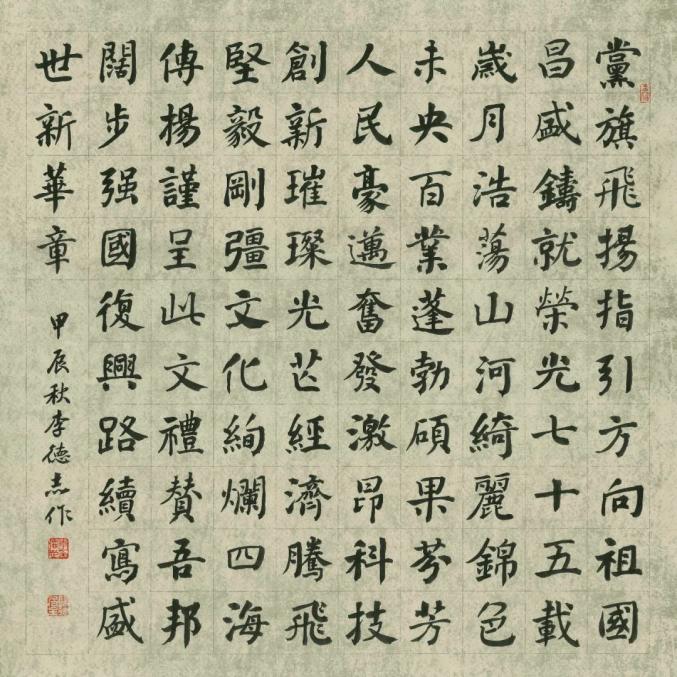 黨旗飛揚指引方向祖國
昌盛鑄就榮光七十五載
歲月浩蕩山河綺麗錦色
未央百業蓬勃碩果芬芳
人民豪邁奮發激昂科技
創新璀璨光芒經濟騰飛
堅毅剛彊文化絢爛四海
傳揚謹呈此文禮贊吾邦
闊步强國復興路續寫盛
世新華章
甲辰秋李德志作